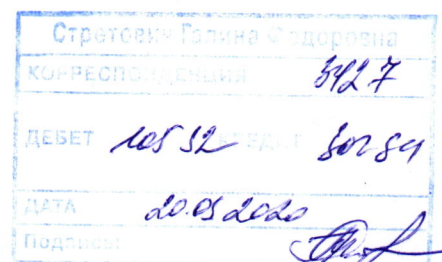 Стретович Галина Федоровна
КОРРЕСПОНДЕНЦИЯ 3427
ДЕБЕТ 105 32 КРЕДИТ
ДАТА 20.03.2020
Подпись: